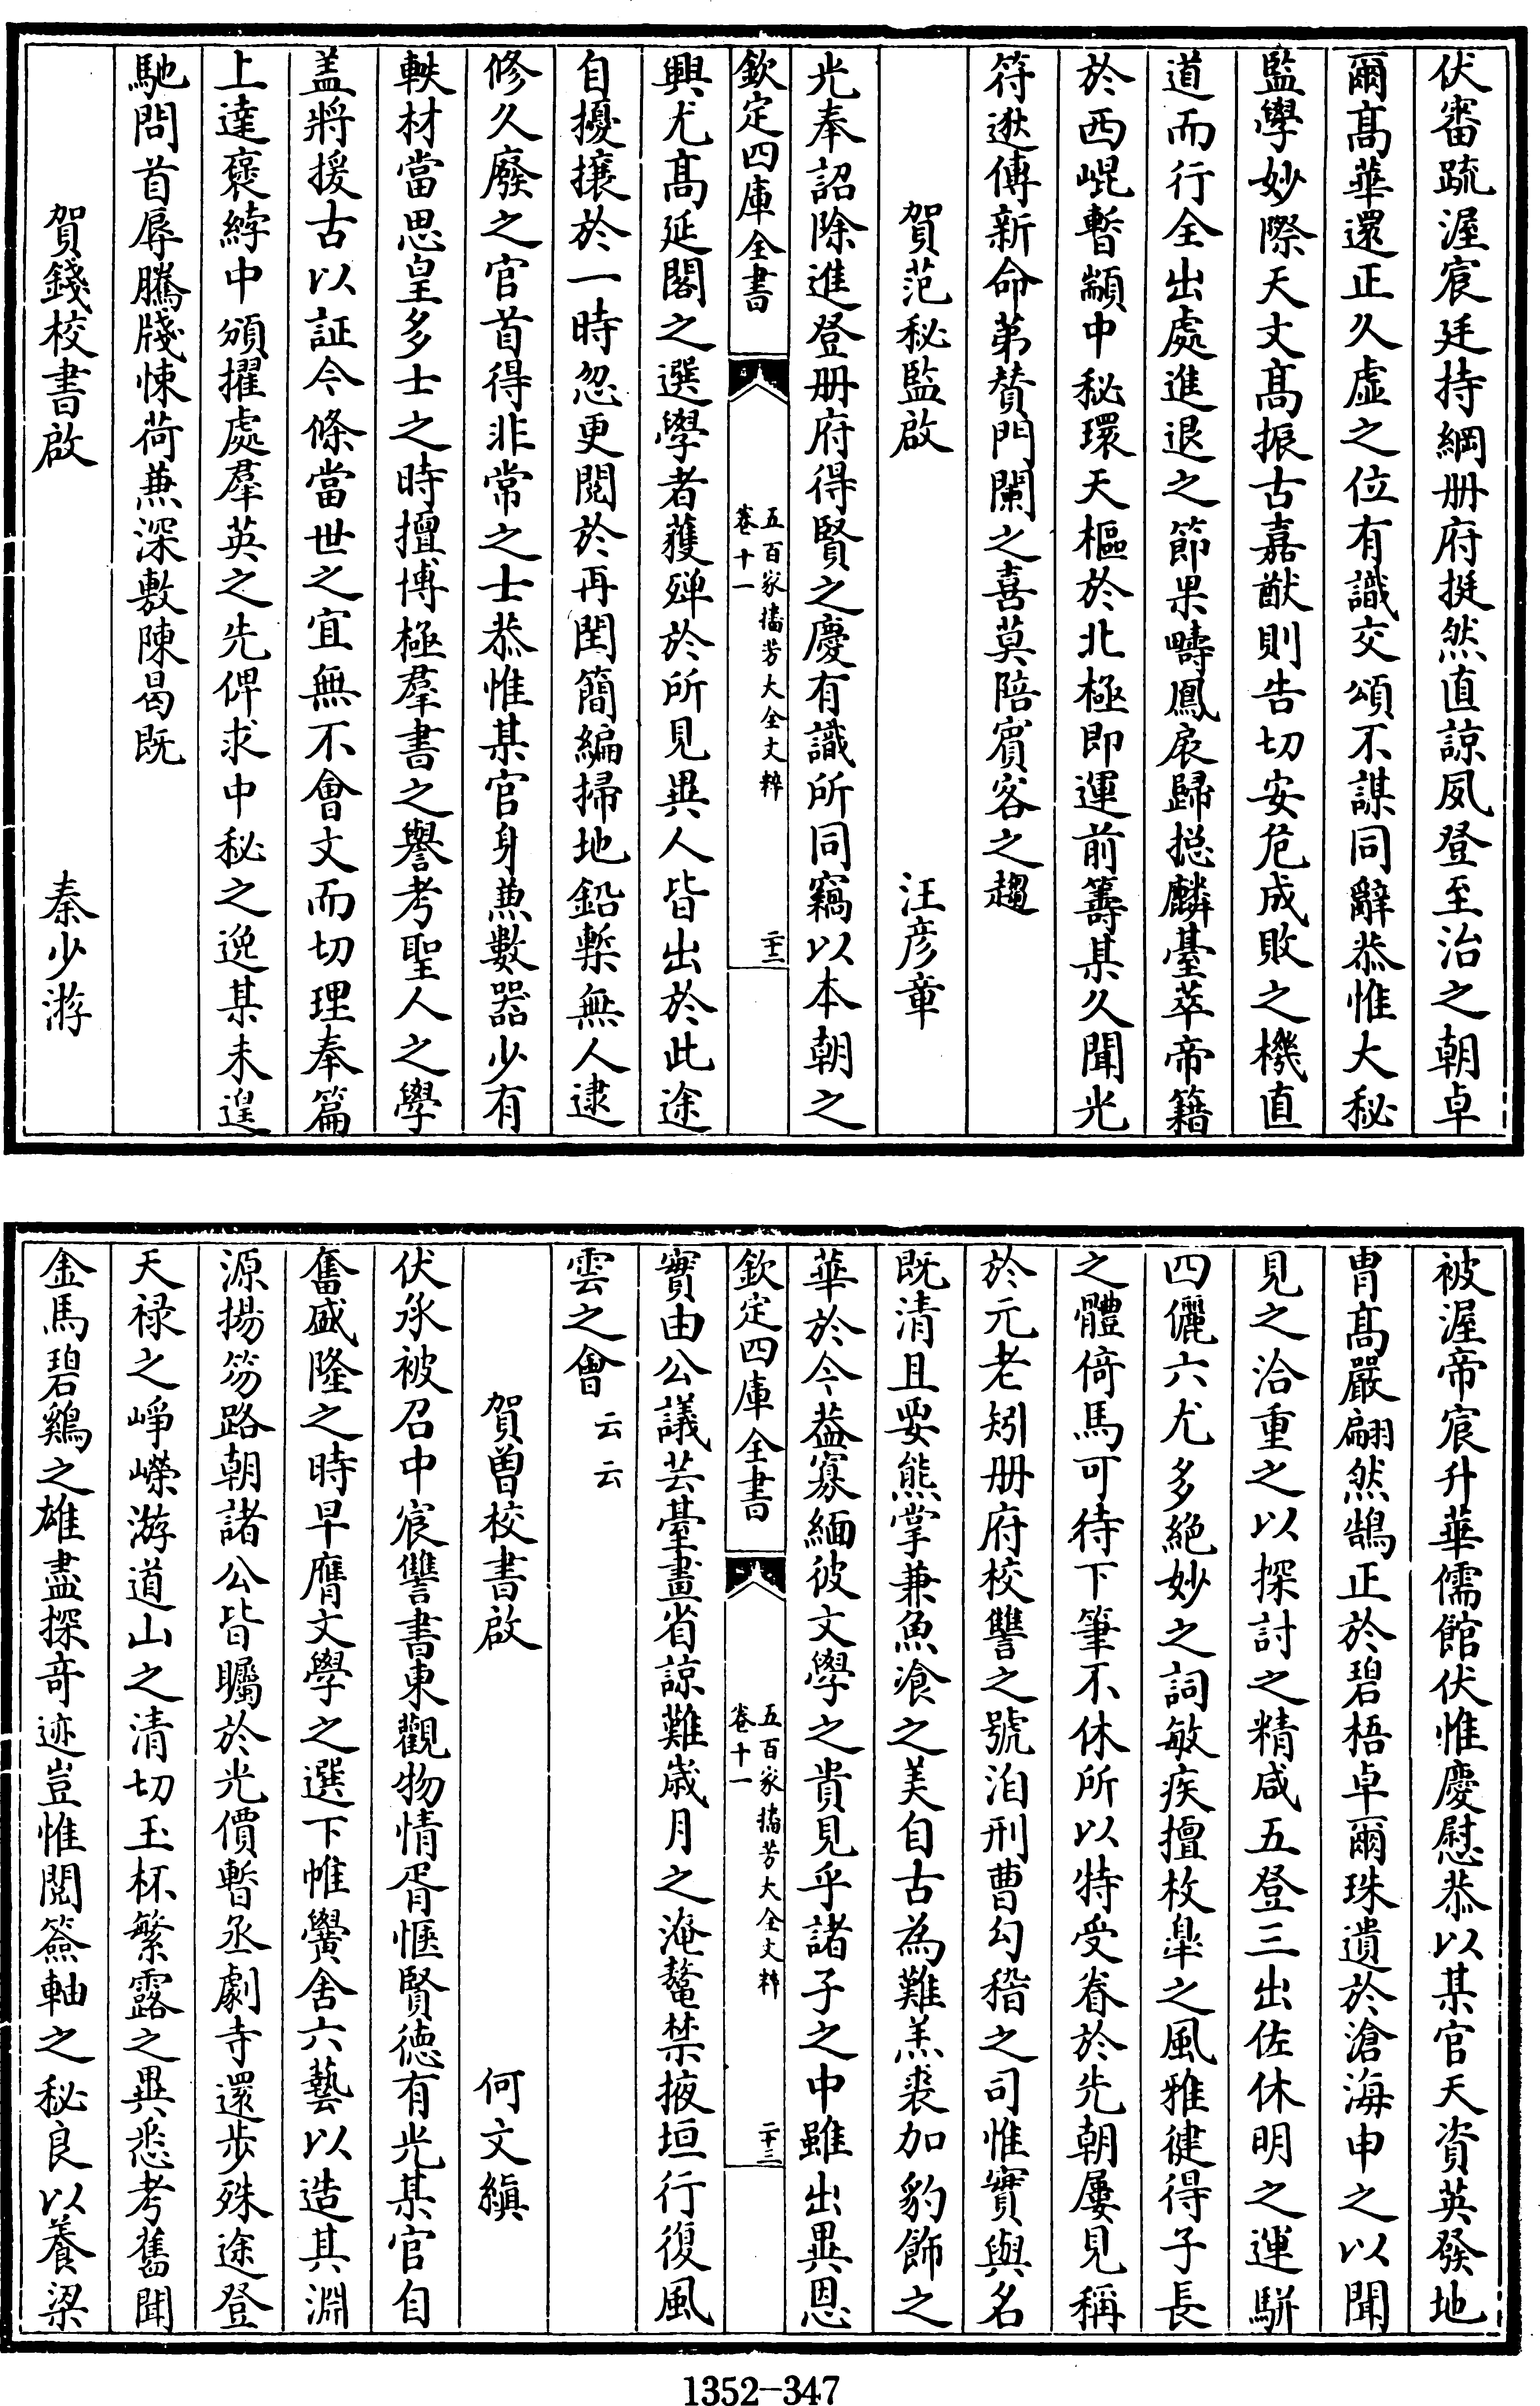 伏審䟽渥宸廷持綱册府挺然直諒夙登至治之朝卓
爾髙華還正久虚之位有識交頌不謀同辭恭惟大秘
監學妙際天文髙振古嘉猷則告切安危成敗之機直
道而行全出處進退之節果疇鳳扆歸捴麟臺萃帝籍
於西崐暫顓中秘環天樞於北極即運前籌某久聞光
符逖傳新命弟賛門闌之喜莫陪賓客之趨
賀范秘監啟 汪彦章
光奉詔除進登册府得賢之慶有識所同竊以本朝之
欽定四庫全書 五百家播芳大全文粹 卷十一 二十二
興尤髙延閣之選學者獲殫於所見異人皆出於此途
自擾攘於一時忽更閲於再閏簡編掃地鉛槧無人逮
修乆廢之官首得非常之士恭惟某官身兼數器少有
軼材當思皇多士之時擅博極羣書之譽考聖人之學
盖將援古以証今條當世之宜無不會文而切理奉篇
上達褒綍中頒擢處羣英之先俾求中秘之逸某未遑
馳問首辱騰牋悚荷兼深敷陳曷既
賀錢校書啟 秦少游
被渥帝宸升華儒館伏惟慶慰恭以某官天資英發地
胄髙嚴翩然鵠正於碧梧卓爾珠遺於滄海申之以聞
見之洽重之以探討之精咸五登三出佐休明之運駢
四儷六尤多絶妙之詞敏疾擅枚臯之風雅健得子長
之體倚馬可待下筆不休所以特受眷於先朝屢見稱
於元老矧册府校讐之號洎刑曹勾稽之司惟實與名
既清且要熊掌兼魚飡之美自古為難羔裘加豹飾之
華於今葢寡緬彼文學之貴見乎諸子之中雖出異恩
欽定四庫全書 五百家播芳大全文粹 卷十一 二十三
實由公議芸臺畫省諒難歳月之淹鼇禁掖垣行復風
雲之會 云云
賀曽校書啟 何文縝
伏承被召中宸讐書東觀物情胥愜賢德有光某官自
奮盛隆之時早膺文學之選下帷黌舍六藝以造其淵
源揚笏路朝諸公皆矚於光價暫丞劇寺還步殊途登
天禄之崢嶸游道山之清切玉杯繁露之異悉考舊聞
金馬碧鷄之雄盡探竒迹豈惟閲簽軸之秘良以養梁
1352-347